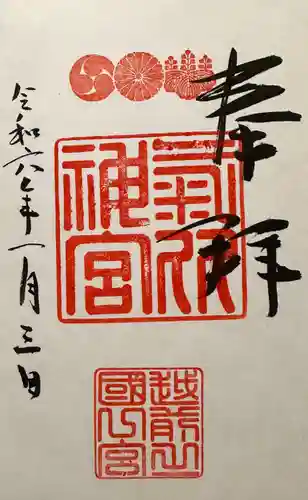 奉拜
氣比神宮
越前之
國一宮
令和六年一月三日